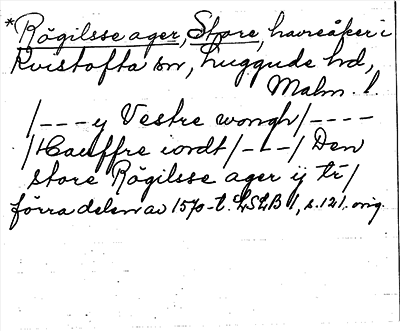 *Rögilsse ager, Store, havreåker i
Kvistofta sn, Luggude hd,
Malm. l
/---y Vestre wongh/----
/Hauffre iordt/---/Den
store Rögilsse ager ij tr/
förra delen av 1570-t. LSLB 1, s. 121. orig.